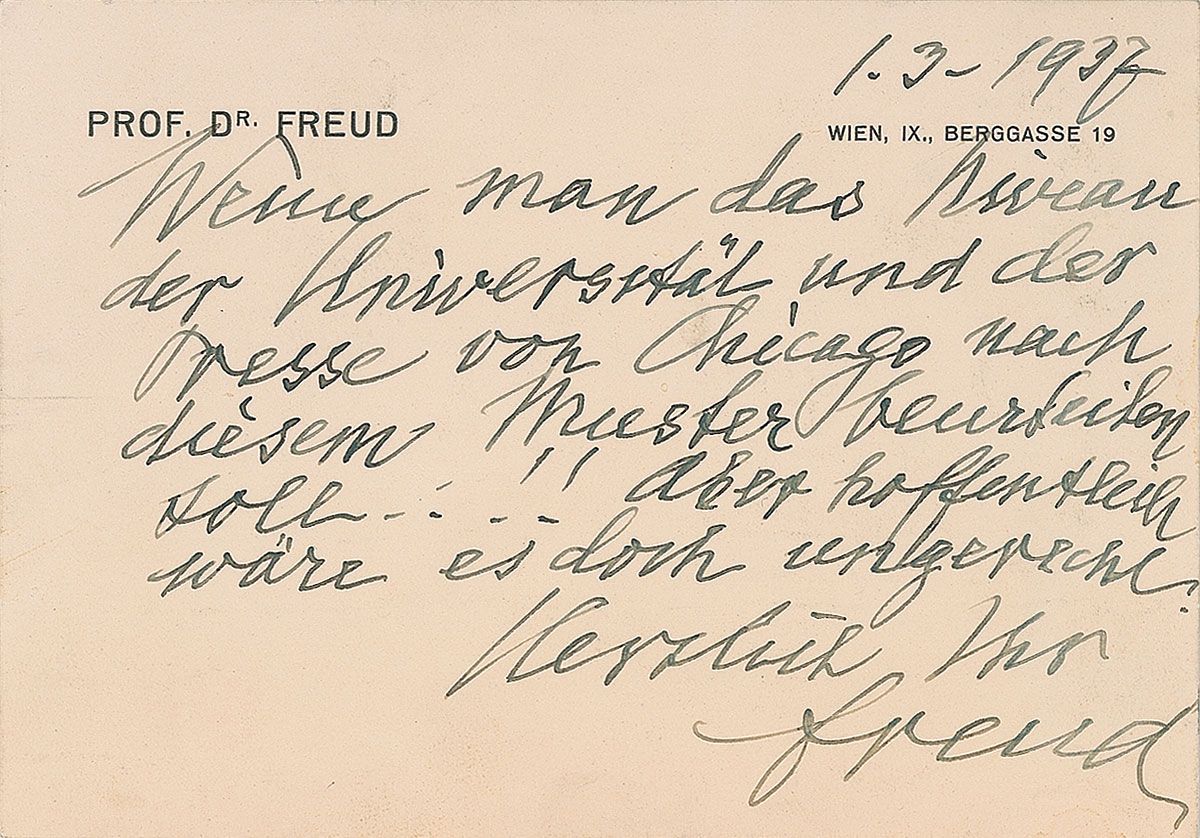 1.3- 1937
PROF. DR. FREUD
WIEN, IX., BERGGASSE 19
Wenn man das Niveau
der Universität und der
Presse von Chicago nach
diesem Muster beurteilen
soll - . - . - !! Aber hoffentlich
wäre es doch ungerecht.
Herzlich Ihr
Freud